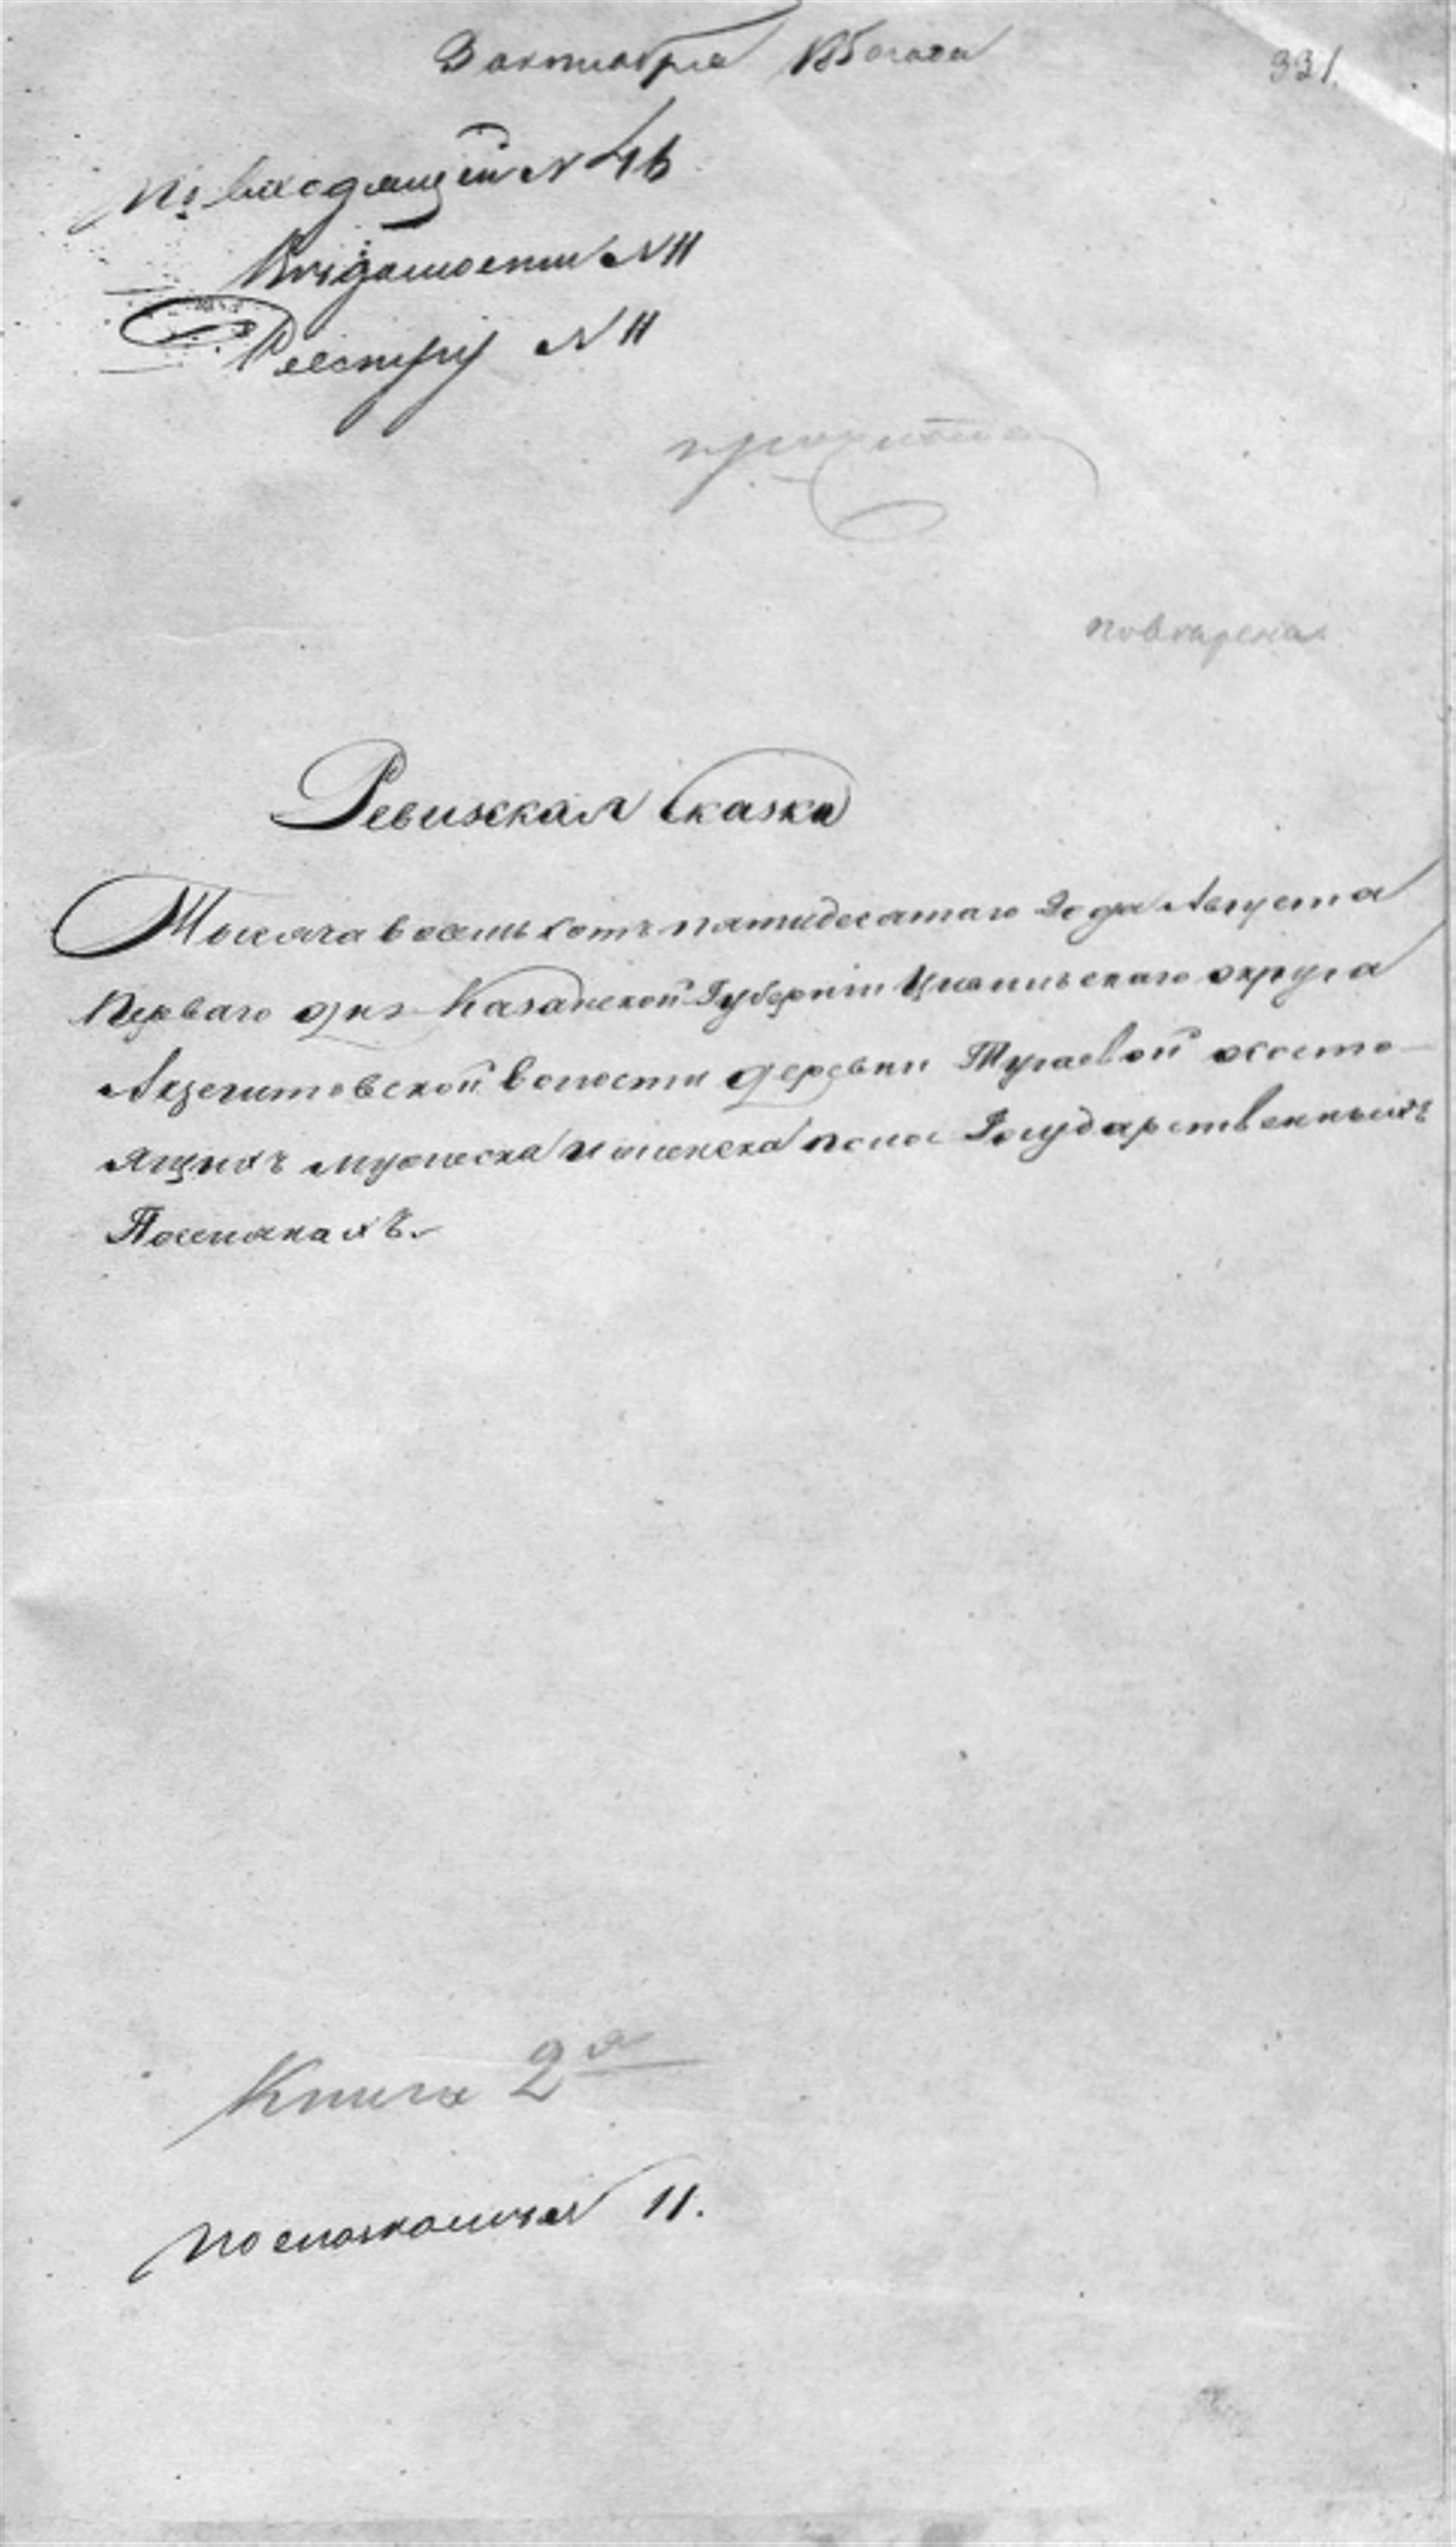 3 октября 1850 года
331.
По входящей N 46
Вѣдомости N 11
Реестру N 11
повѣрена
Ревижская Сказка
Тысяча восемь сотъ пятидесятаго Года Августа
Перваго дня Казанской Губерніи Цивильскаго округа
Акзегитовской волости деревни Тугаевой о состо-
ящихъ мужеска и женска пола Государственныхъ
Поселянахъ.
Книга 2я
11.